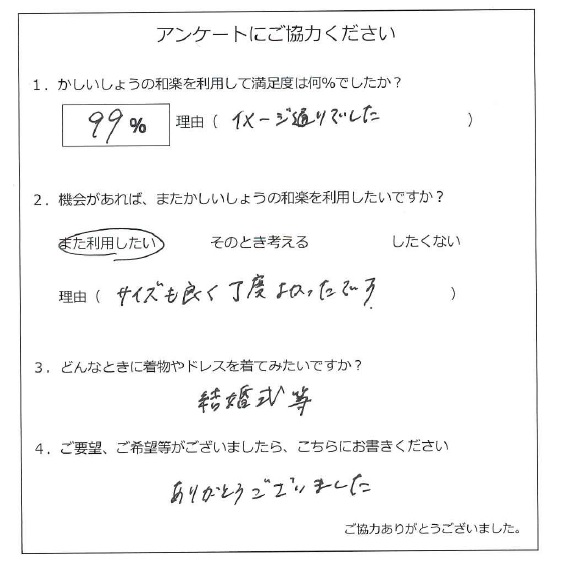 アンケートにご協力ください
1．かしいしょうの和楽を利用して満足度は何％でしたか？
99％ 理由（ イメージ通りでした ）
2．機会があれば、またかしいしょうの和楽を利用したいですか？
また利用したい そのとき考える したくない
理由（ サイズも良く丁度よかったです ）
3．どんなときに着物やドレスを着てみたいですか？
結婚式等
4．ご要望、ご希望等がございましたら、こちらにお書きください
ありがとうございました
ご協力ありがとうございました。